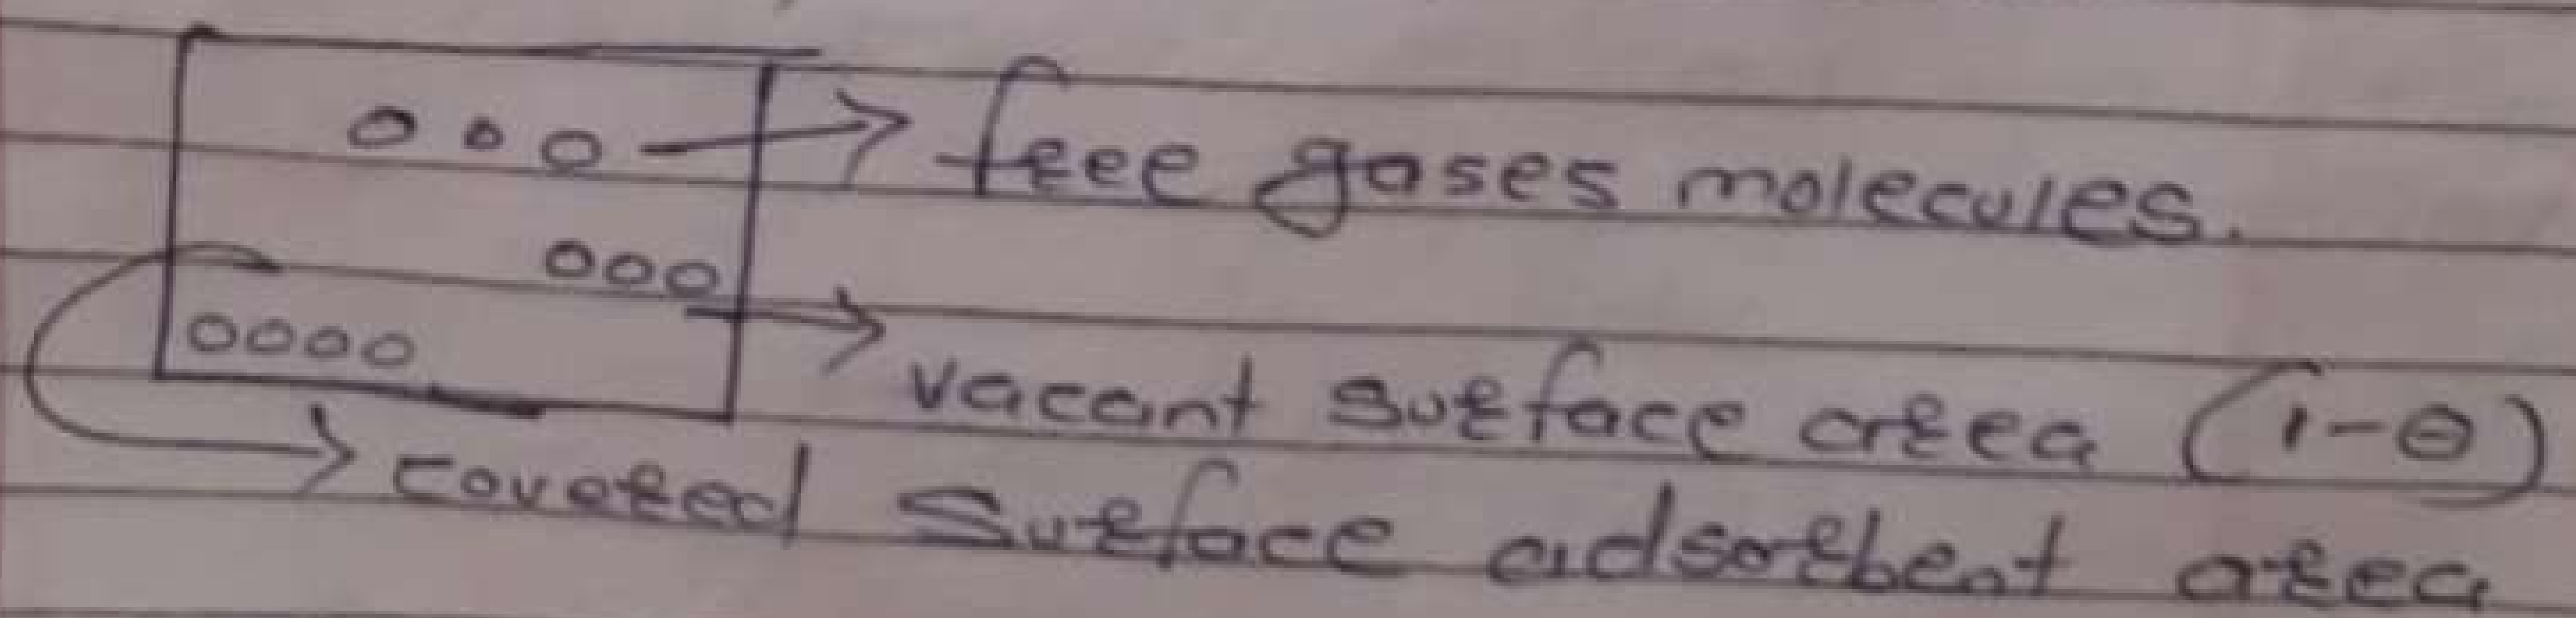 free gases molecules.
vacant surface area (1-θ)
covered surface adsorbent area